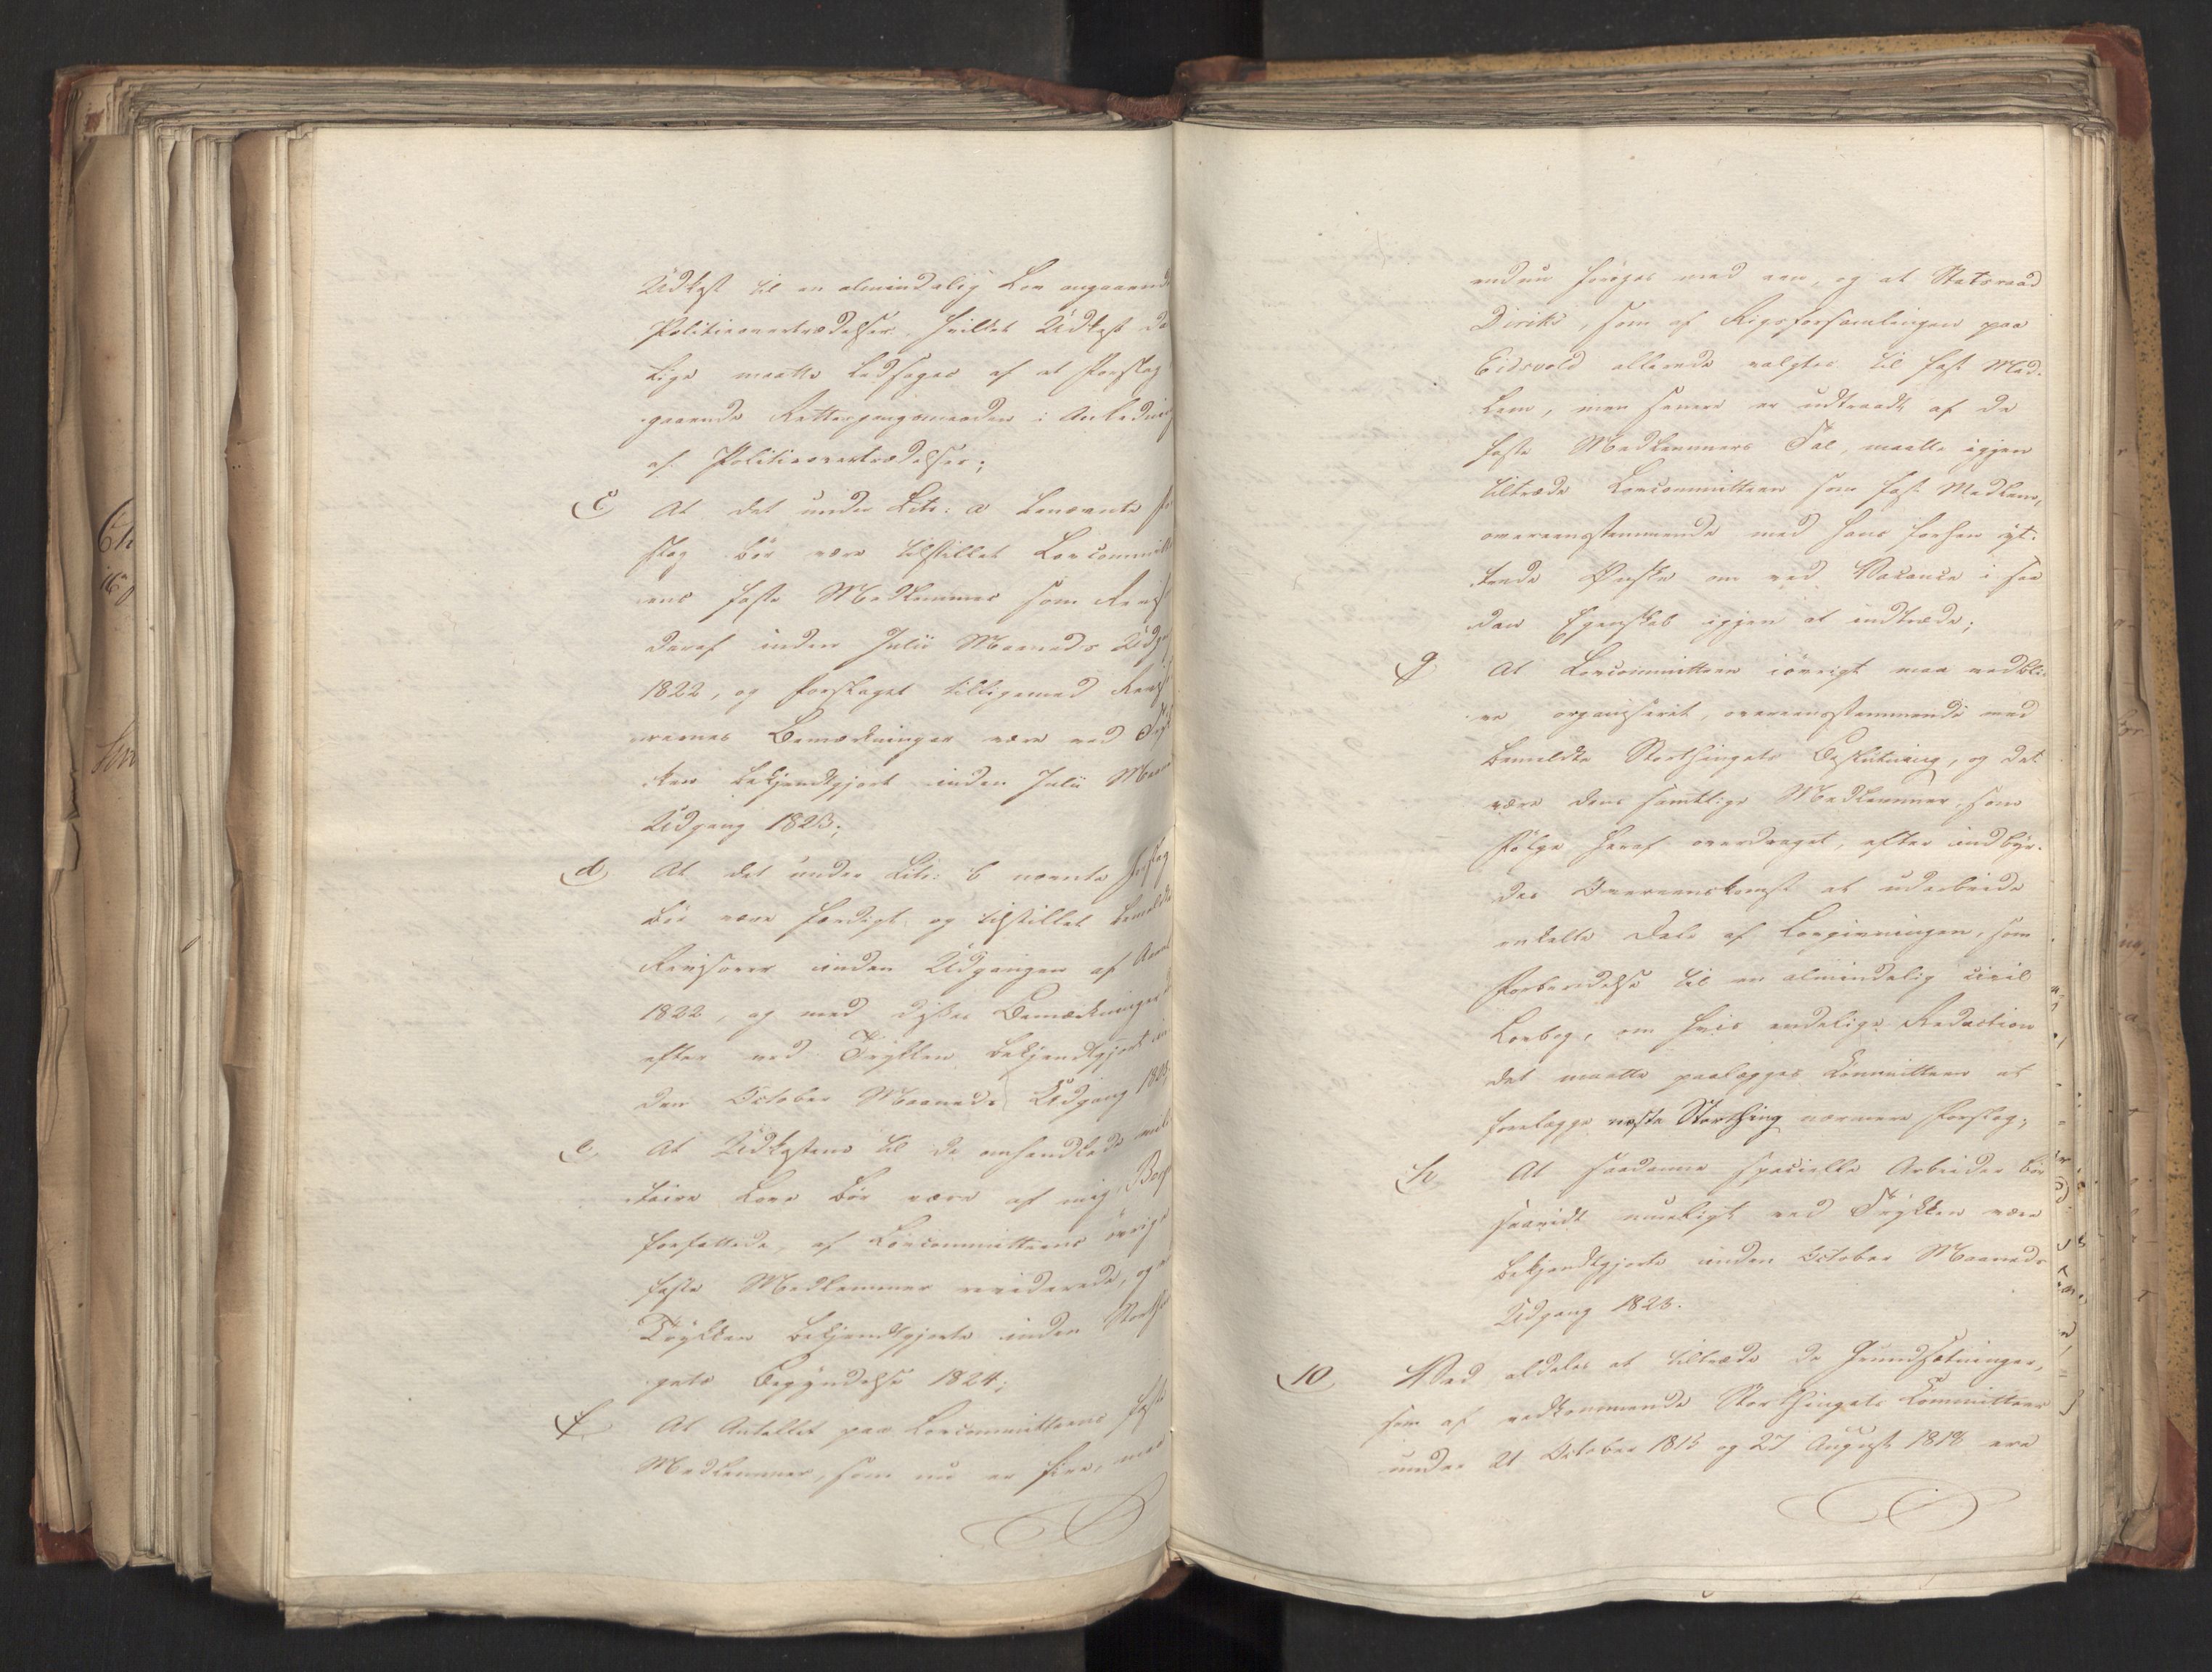 Udkast til en almindelig Lov angaaende
Politieovertrædelser, hvilket Udkast
lige maatte ledsages af et Forslag
gaaende Rettergangsmaaden i Anledning
af Politieovertrædelser;
c At det under Litr: a benævnte
slag bör være tilstillet Lovcommitte
ens faste Medlemmer som
deraf inden Julii Maaneds
1822, og Forslaget tilligemed
Bemærkninger være ved
ken bekjendtgjort inden Julii
Udgang 1823;
d At det under Litr: b nævnte Forslag
bör være færdigt og tilstillet bemeldte
Revisorer inden Udgangen af
1822, og med disses Bemærkninger
efter ved Trykken bekjendtgjort
den October Maaneds Udgang 1823
e At Udkastene til de omhandlede
taire Love bör være af mig
forfattede, af Lovcommitteens övrige
faste Medlemmer reviderede, og
Trykken bekjendtgjorte inden
gets Begyndelse 1824;
f At Antallet paa Lovcommitteens faste
Medlemmer, som nu er fire,
endnu foröges med een, og at Statsraad
Diriks, som af Rigsforsamlingen paa
Eidsvold allerede valgtes til fast Med-
lem, men senere er udtraadt af de
faste Medlemmers Tal, maatte igjen
tiltræde Lovcommitteen som fast Medlem,
overeensstemmende med hans forhen yt-
trede Ønske om ved Vacance i saa
dan Egenskab igjen at indtræde;
g At Lovcommitteen iövrigt maa vedbli-
ve organiseret, overeensstemmende med
bemeldte Storthingets Beslutning, og det
være dens samtlige Medlemmer, som
Fölge heraf overdraget, efter indbyr-
des Overeenskomst at udarbeide
enkelte Dele af Lovgivningen, som
Forberedelse til en almindelig civil
Lovbog, om hvis endelige Redaction
det maatte paalægges Committeen at
forelægge næste Storthing nærmere Forslag;
h At saadanne specielle Arbeider bör
saavidt mueligt ved Trykken være
bekjendtgjorte inden October Maaneds
Udgang 1823.
10 Ved aldeles at tiltræde de Grundsætninger,
som af vedkommende Storthingets Committeer
under 21 October 1815 og 27 August 1818 ere